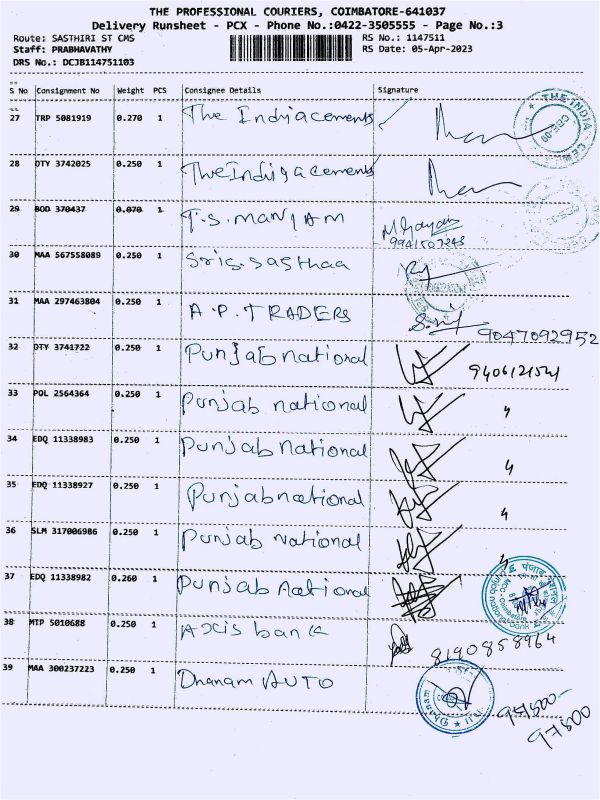 THE PROFESSIONAL COURIERS, COIMBATORE-641037
Delivery Runsheet - PCX - Phone No.:0422-3505555 - Page No.:3
Route: SASTHIRI ST CMS RS No.: 1147511
Staff: PRABHAVATHY RS Date: 05-Apr-2023
DRS No.: DCJB114751103
S No Consignment No Weight PCS Consignee Details Signature
27 TRP 5081919 0.270 1 The Indiacements
28 DTY 3742025 0.250 1 The Indiya cements
29 BOD 370437 0.070 1 T.S. MANIAM
9941507243
30 MAA 567558089 0.250 1 Sris.sasthaa
31 MAA 297463804 0.250 1 A.P. TRADERS 9047092952
32 DTY 3741722 0.250 1 Punjab national
33 POL 2564364 0.250 1 Punjab national "
34 EDQ 11338983 0.250 1 Punjab national "
35 EDQ 11338927 0.250 1 Punjabnational "
36 SLM 317006986 0.250 1 Punjab national "
37 EDQ 11338982 0.260 1 Punjab national
38 MTP 5010688 0.250 1 Axis bank 8190858964
39 MAA 300237223 0.250 1 Dhanam AUTO
97800